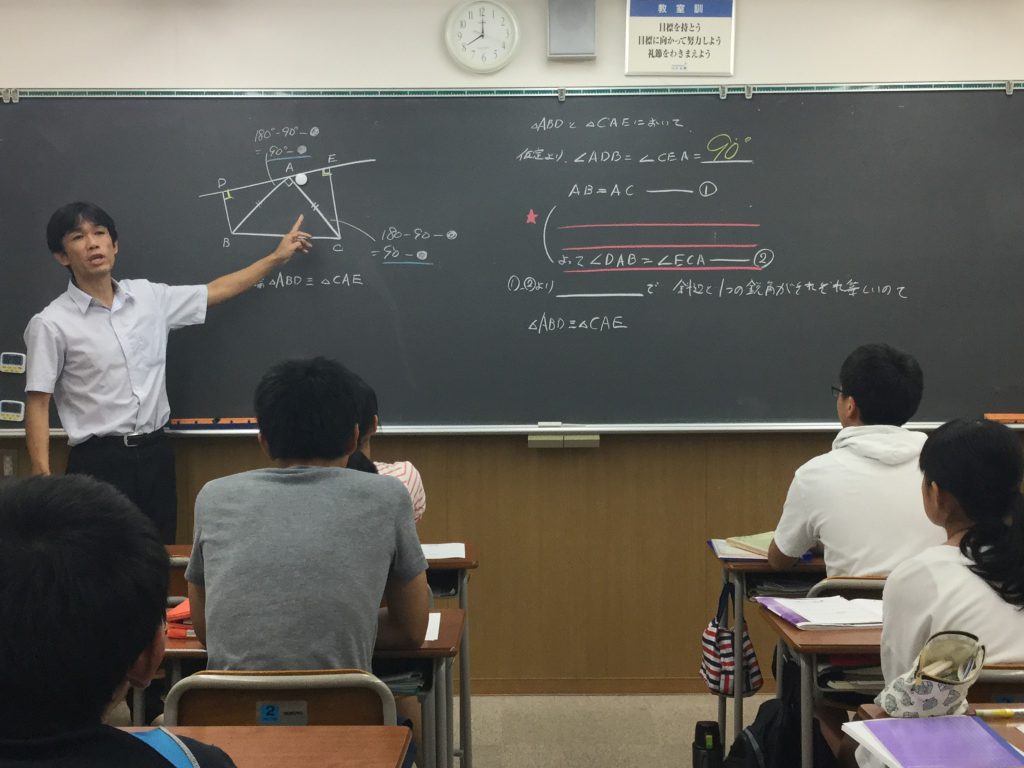 教室訓
目標を持とう
目標に向かって努力しよう
礼節をわきまえよう
180°-90°-●
=90°-●
D
A
E
B
C
180-90-●
=90-●
△ABD≡△CAE
△ABDと△CAEにおいて
仮定より、∠ADB=∠CEA=90°
AB=AC ①
よって∠DAB=∠ECA ②
①,②より で 斜辺と1つの鋭角がそれぞれ等しいので
△ABD≡△CAE
2